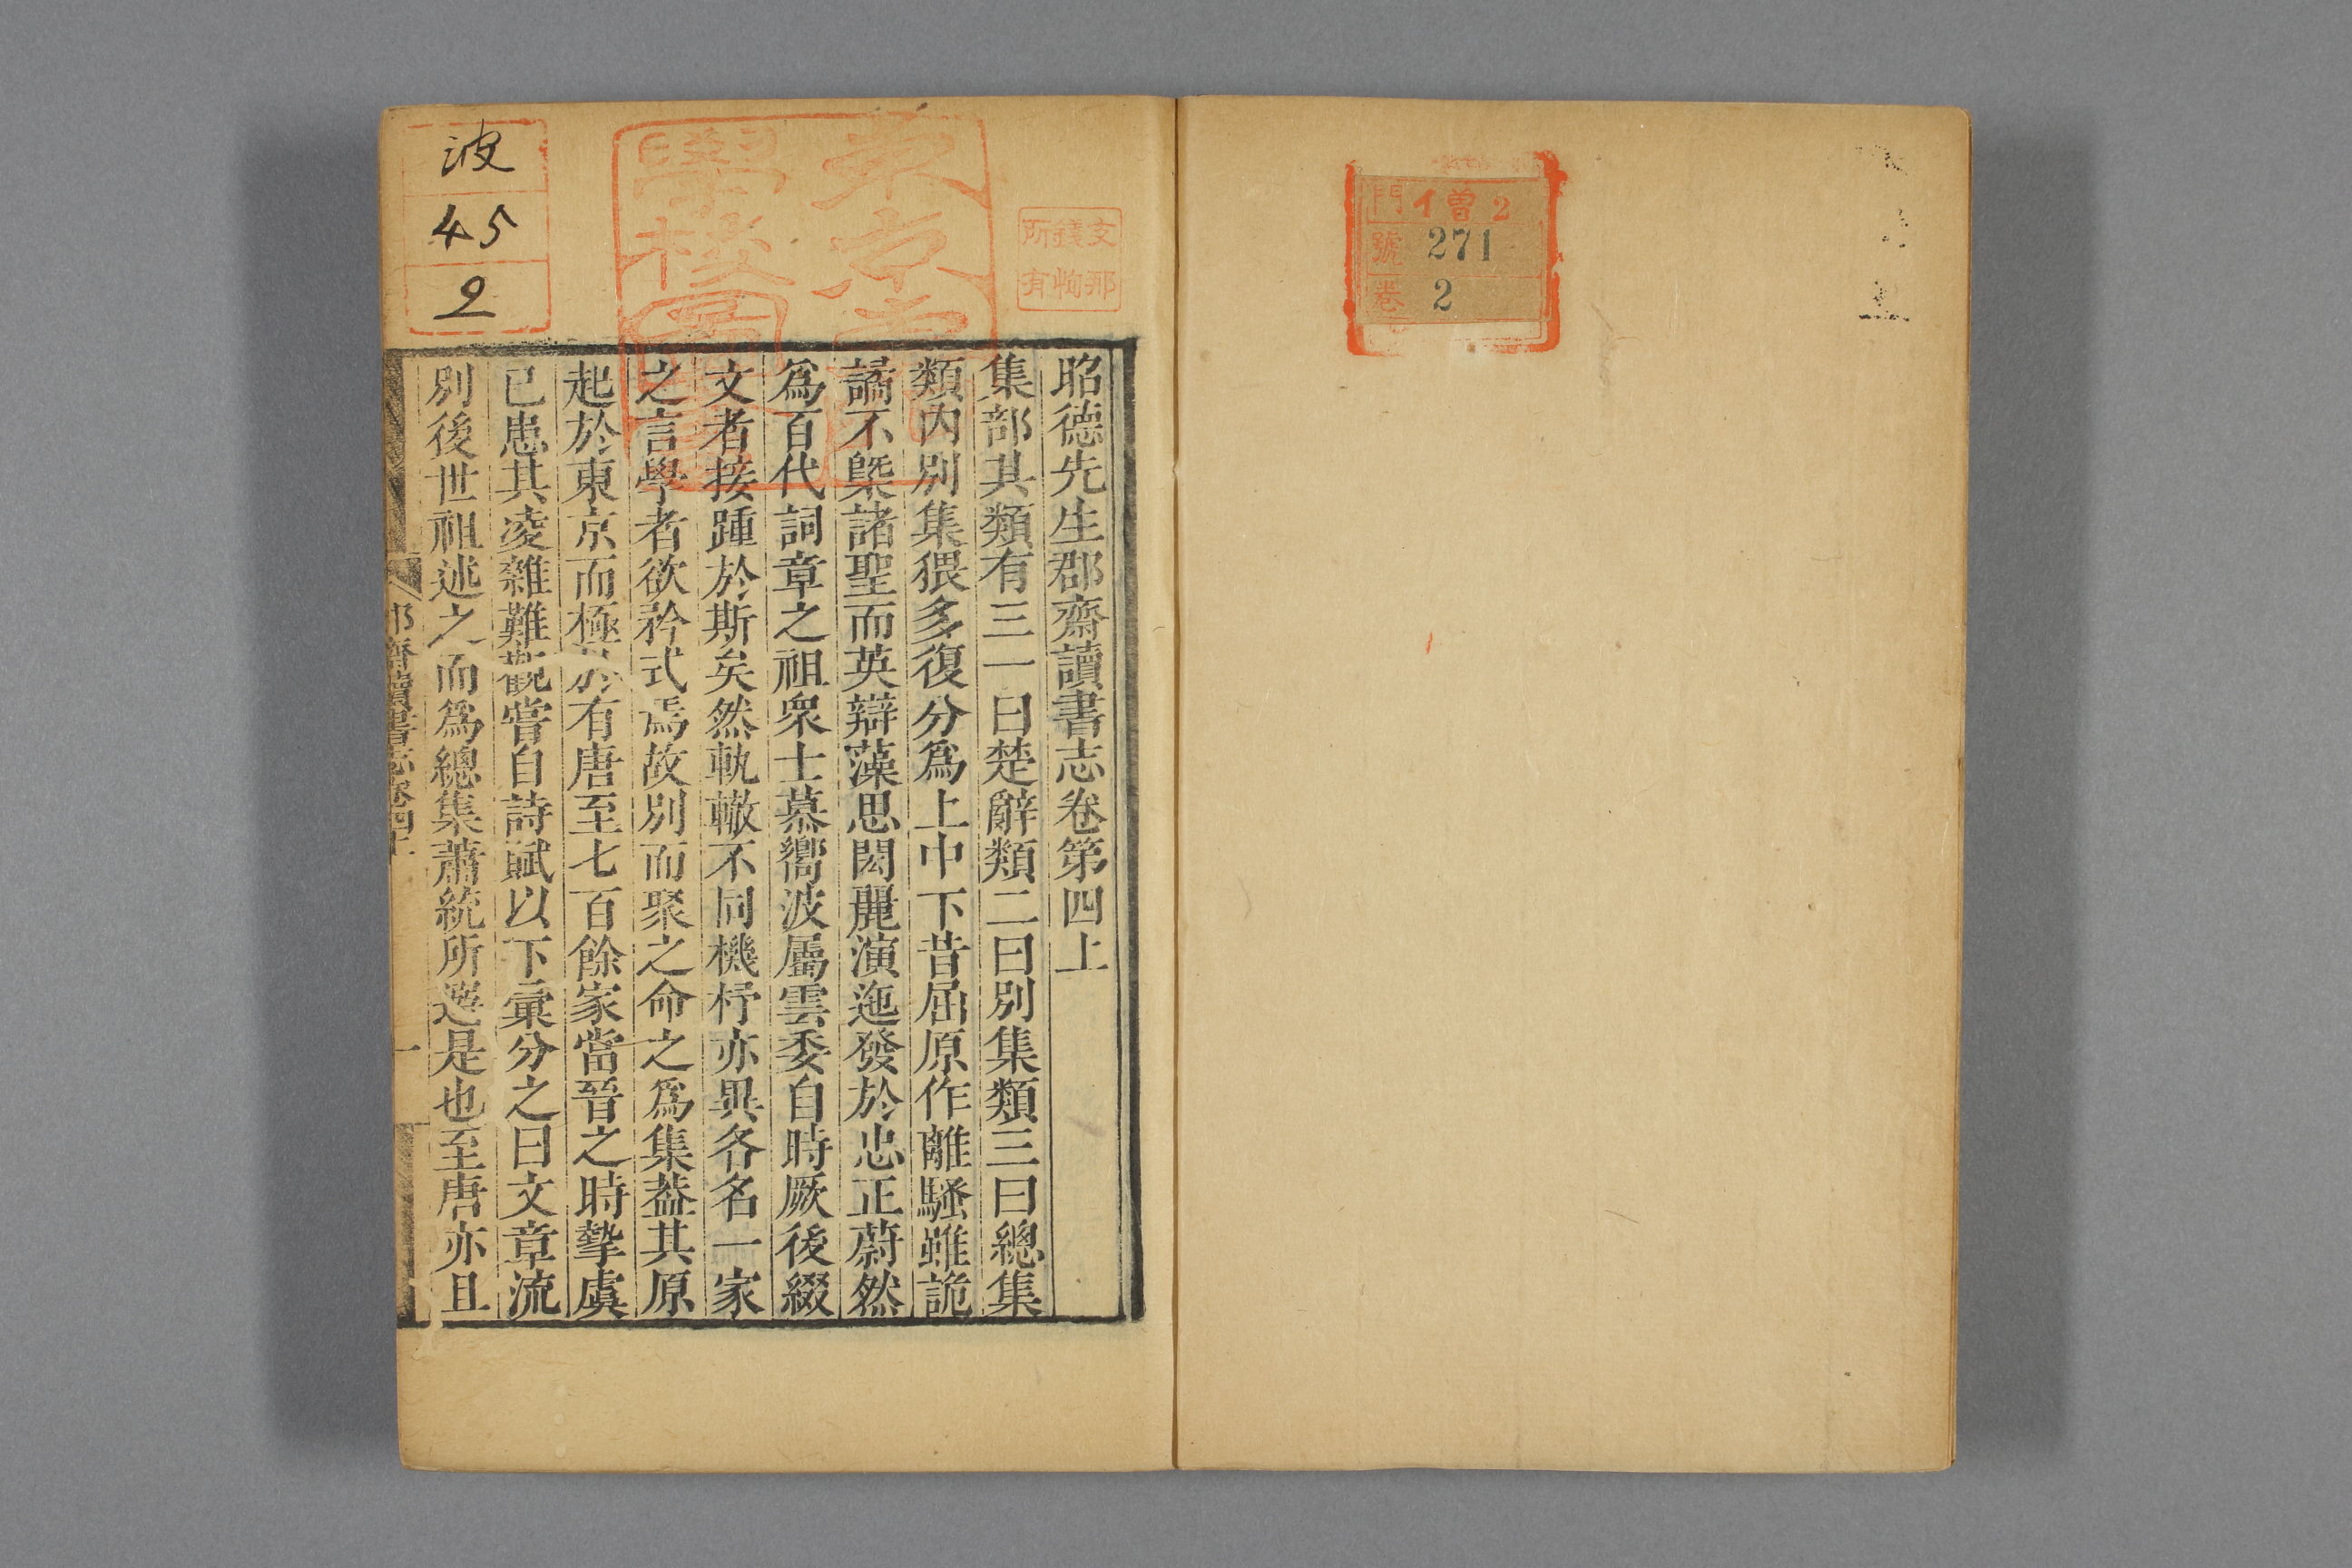 門 イ曽2
號 271
卷 2
昭德先生郡齋讀書志卷第四上
集部其類有三一曰楚辭類二曰別集類三曰總集
類內別集猥多復分爲上中下昔屈原作離騷雖詭
譎不槩諸聖而英辯藻思閎麗演迤發於忠正蔚然
爲百代詞章之祖衆士慕嚮波屬雲委自時厥後綴
文者接踵於斯矣然軌轍不同機杼亦異各名一家
之言學者欲矜式焉故別而聚之命之爲集葢其原
起於東京而極於有唐至七百餘家當晉之時摯虞
已患其凌雜難觀嘗自詩賦以下彙分之曰文章流
別後世祖述之而爲總集蕭統所選是也至唐亦且
郡齋讀書志卷四上
一
波
45
2